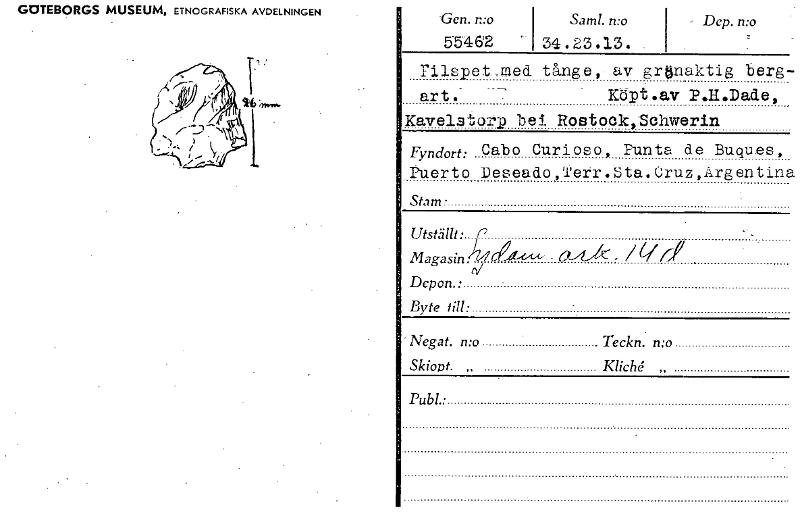 GÖTEBORGS MUSEUM, ETNOGRAFISKA AVDELNINGEN
26 mm
Gen. n:o Saml. n:o Dep. n:o
55462 34.23.13.
Pilspet med tånge, av grönaktig berg-
art. Köpt.av P.H.Dade,
Kavelstorp bei Rostock,Schwerin
Fyndort: Cabo Curioso, Punta de Buques,
Puerto Deseado,Terr.Sta.Cruz,Argentina
Stam:
Utställt:
Magasin: Sydam ark. 14 d
Depon.:
Byte till:
Negat. n:o Teckn. n:o
Skiopt. „ Kliché „
Publ.: